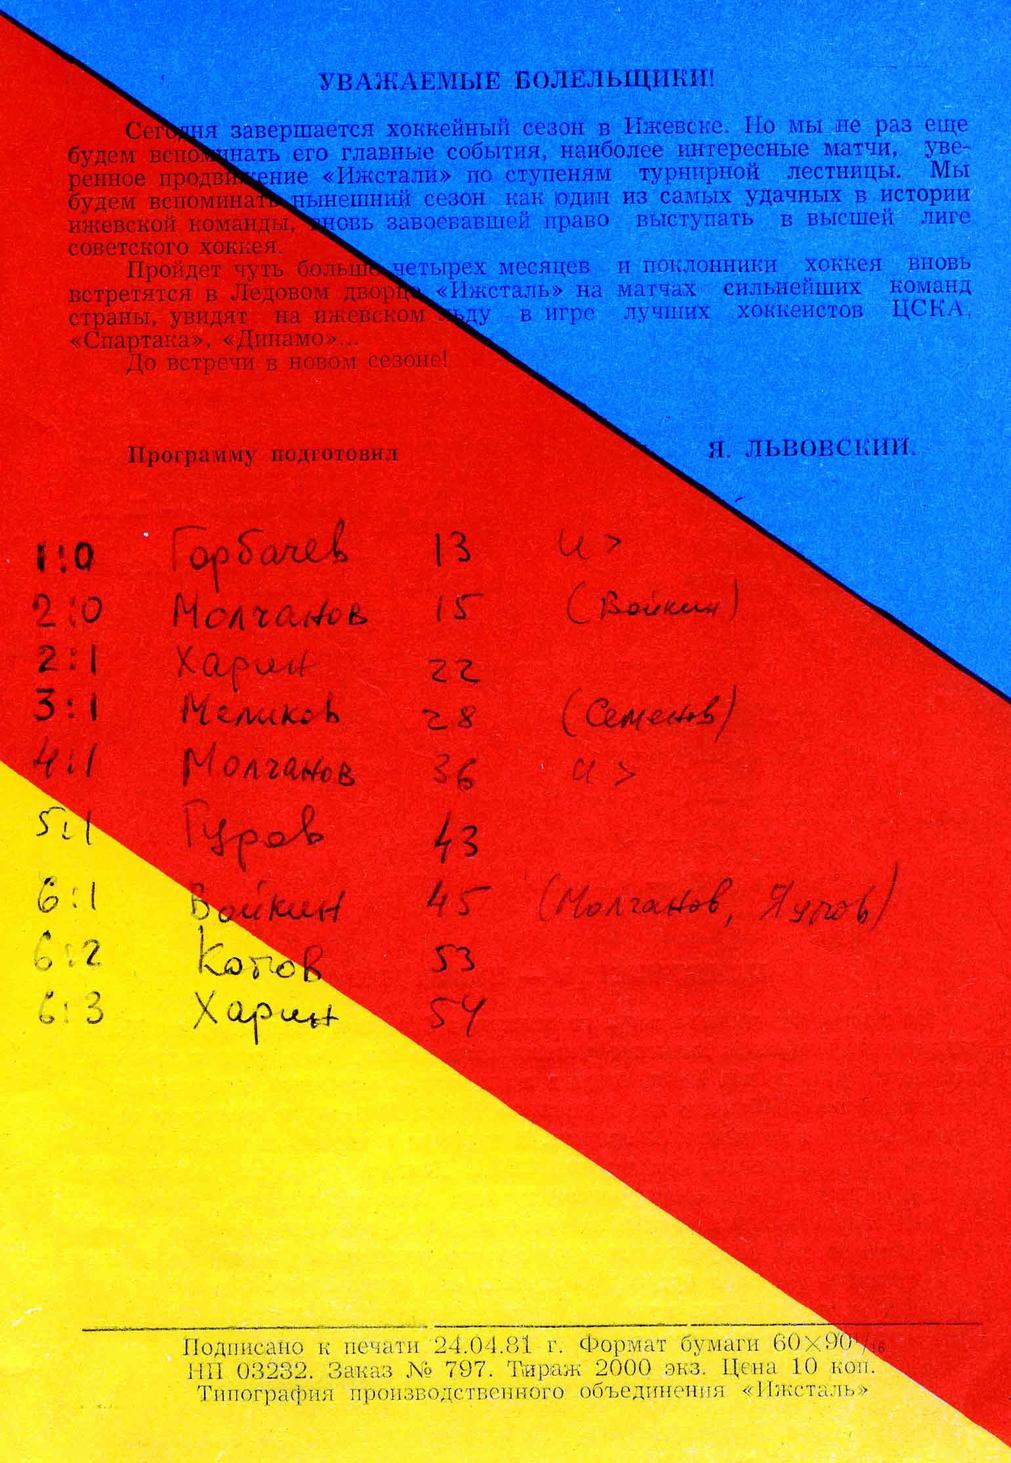 УВАЖАЕМЫЕ БОЛЕЛЬЩИКИ!
Сегодня завершается хоккейный сезон в Ижевске. Но мы не раз еще
будем вспоминать его главные события, наиболее интересные матчи, уве-
ренное продвижение «Ижстали» по ступеням турнирной лестницы. Мы
будем вспоминать нынешний сезон как один из самых удачных в истории
ижевской команды, вновь завоевавшей право выступать в высшей лиге
советского хоккея.
Пройдет чуть больше четырех месяцев и поклонники хоккея вновь
встретятся в Ледовом дворце «Ижсталь» на матчах сильнейших команд
страны, увидят на ижевском льду в игре лучших хоккеистов ЦСКА,
«Спартака», «Динамо»...
До встречи в новом сезоне!
Программу подготовил Я. ЛЬВОВСКИЙ.
1:0 Горбачев 13 и >
2:0 Молчанов 15 (Войкин)
2:1 Харин 22
3:1 Меликов 28 (Семенов)
4:1 Молчанов 36 и >
5:1 Гуров 43
6:1 Войкин 45 (Молчанов,
6:2 Котов 53
6:3 Харин 54
Подписано к печати 24.04.81 г. Формат бумаги 60×90 1/16
НП 03232. Заказ № 797. Тираж 2000 экз. Цена 10 коп.
Типография производственного объединения «Ижсталь»